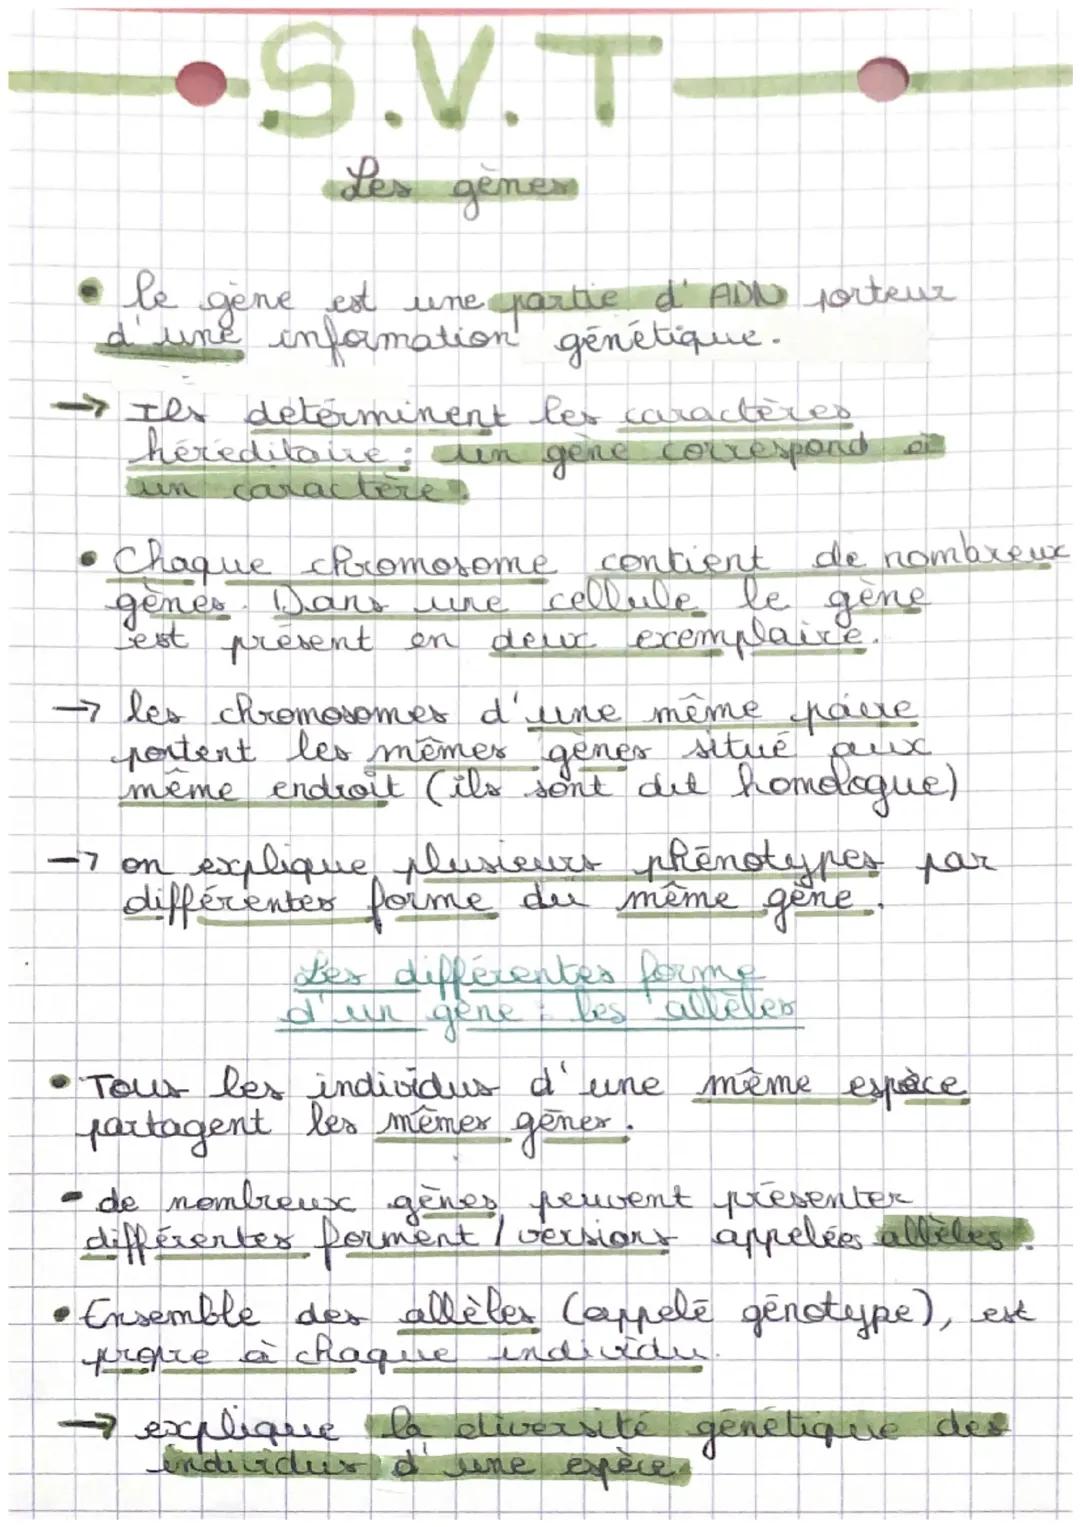 S.V.T
Les gènes
le gène est une partie d'ADN porteur
d'une information génétique.
→ Ils déterminent les caractères
héréditaire : un gène correspond à
un caractère.
• Chaque chromosome contient de nombreux
gènes. Dans une cellule le gène
est présent en deux exemplaire.
→ les chromosomes d'une même paire
portent les mêmes gènes situé aux
même endroit (ils sont dit homologue)
→ on explique plusieurs phénotypes par
différentes forme du même gène.
Les différentes forme
d'un gène : les allèles
• Tous les individus d'une même espèce
partagent les mêmes gènes.
- de nombreux gènes peuvent présenter
différentes forment / versions appelées allèles.
• Ensemble des allèles (appelé génotype), est
propre à chaque individu.
→ explique la diversité génétique des
individus d'une espèce.